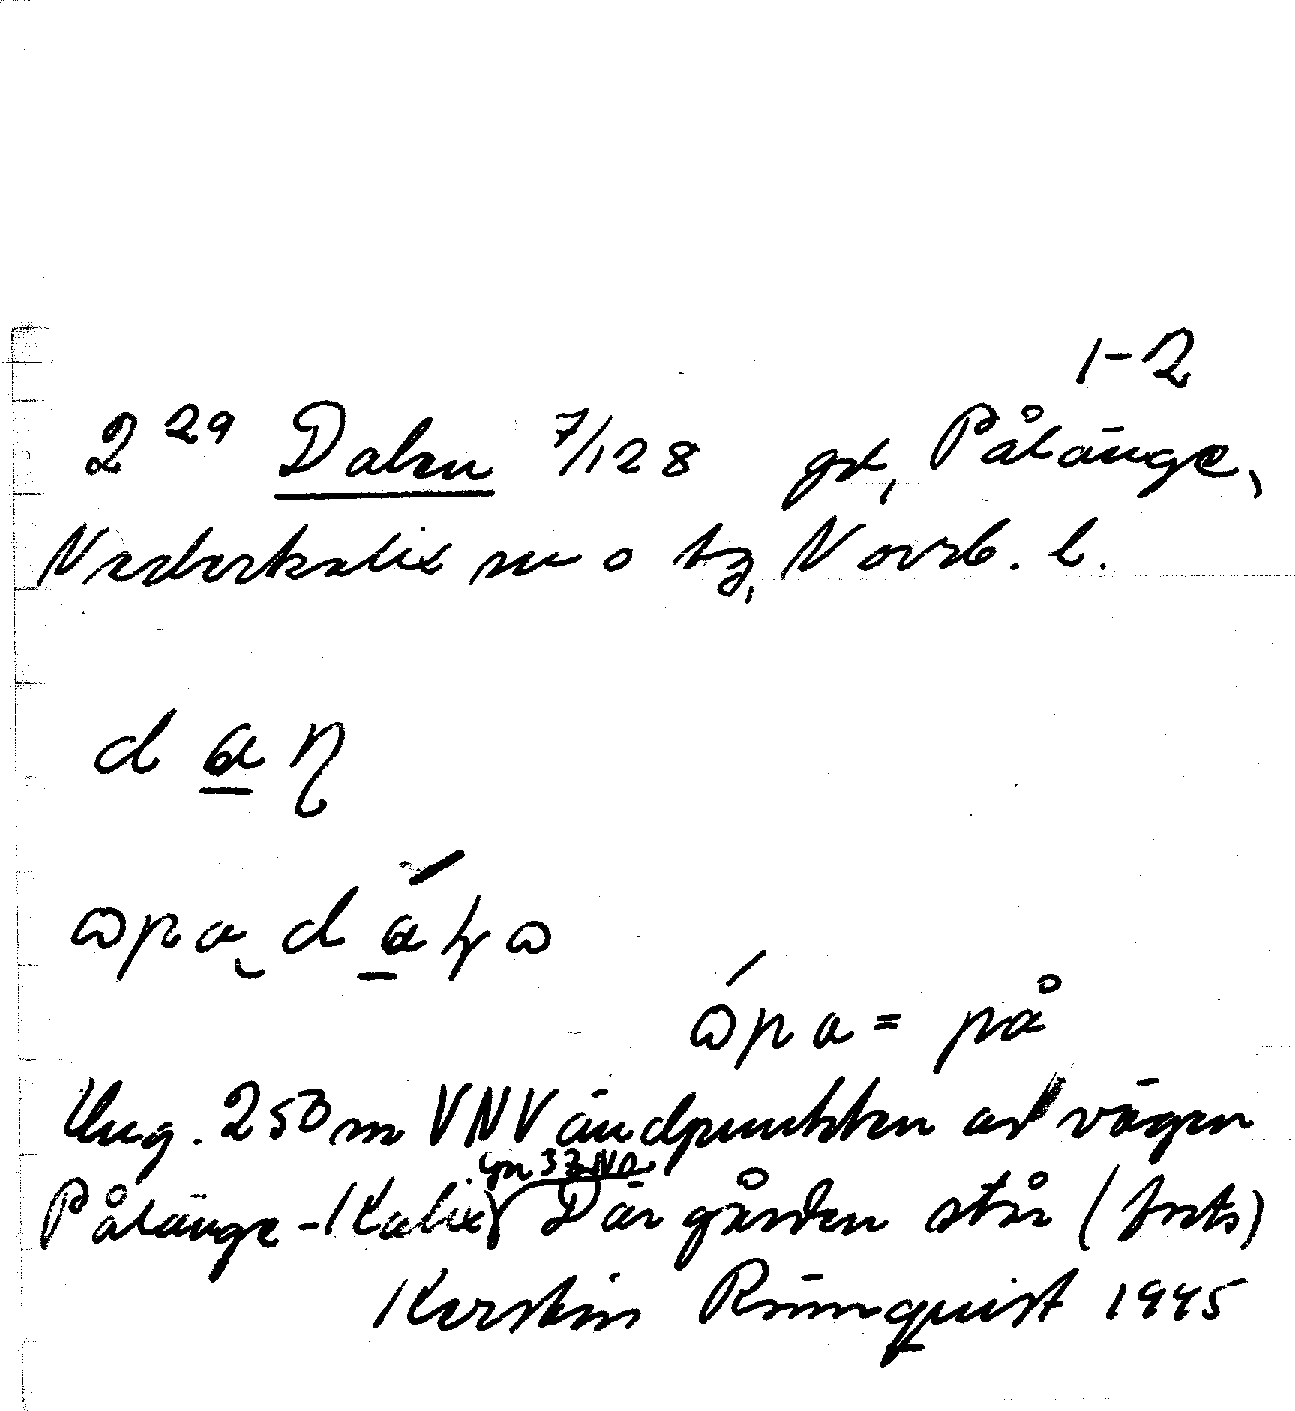 1-2
2 29 Dalen 7/128 gd, Pålänge,
Nederkalix sn o tg, Norrb. l.
dan
ɷpa dálɷ
ɷ́pa = på
Ung. 250 m VNV ändpunkten av vägen
Pålänge - Kalix Där gården står (forts)
Kerstin Rönnquist 1945